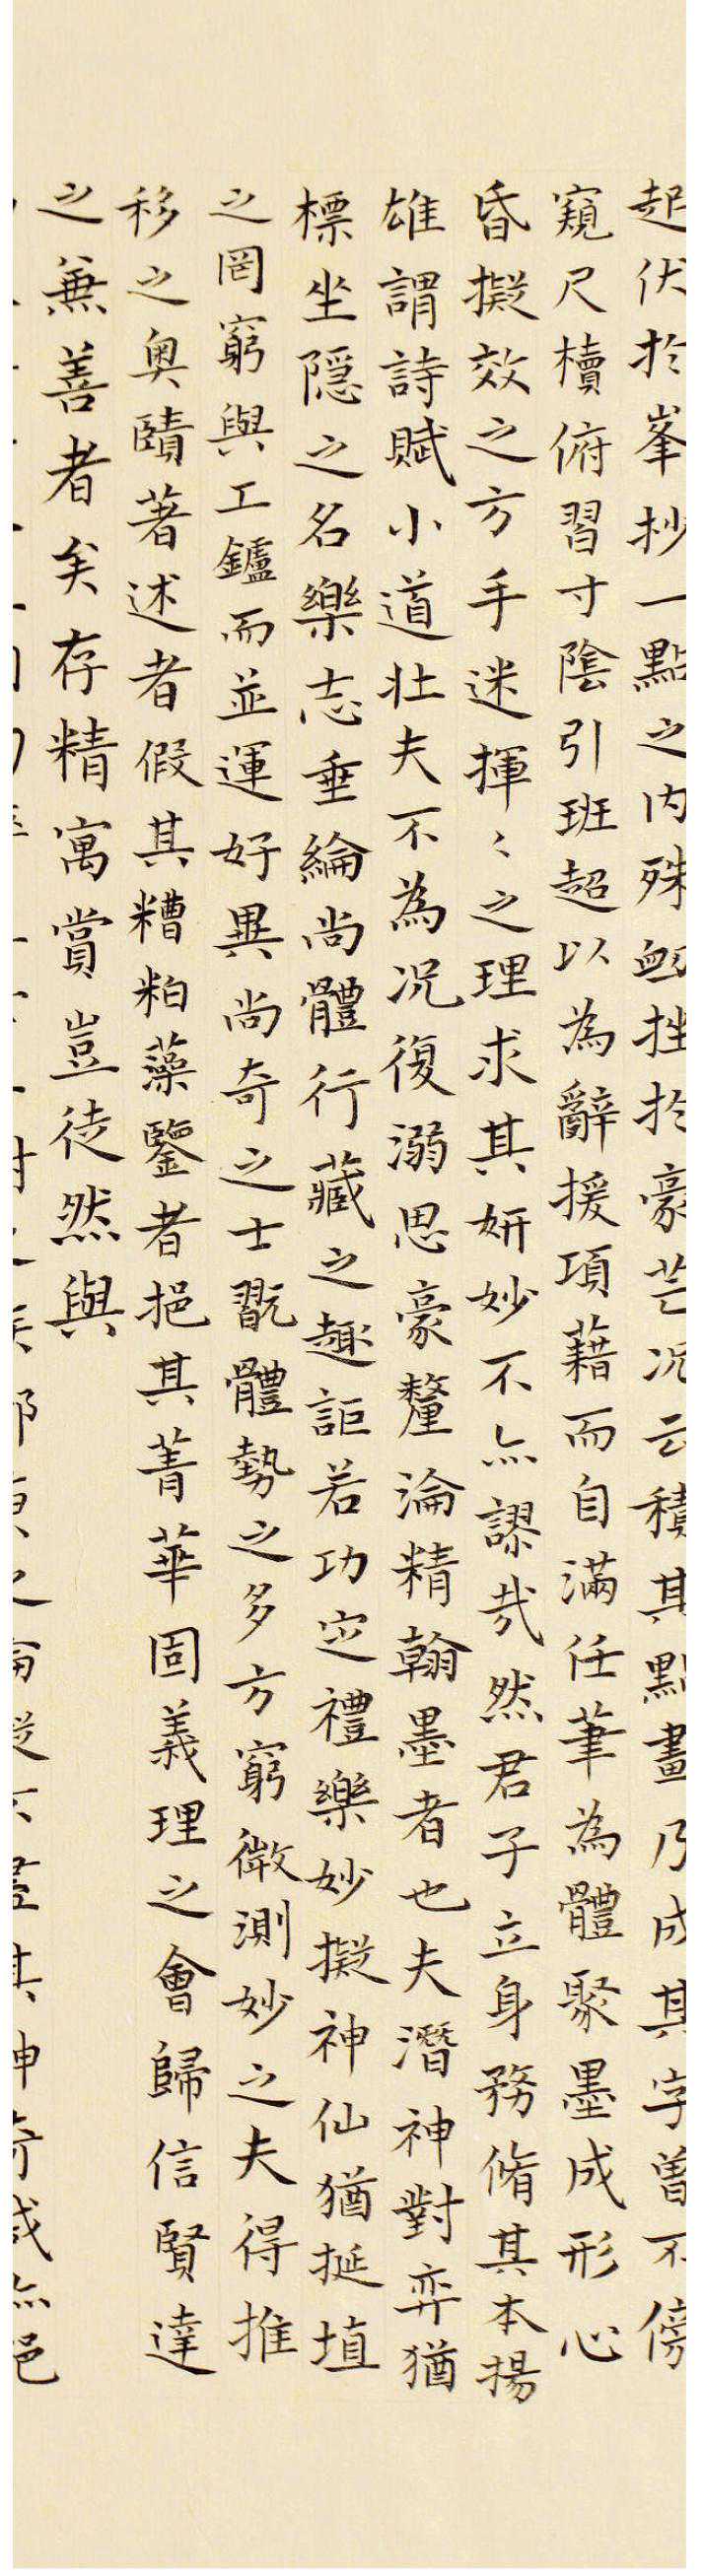 起伏於峯抄一點之内殊衂挫於豪芒况云積其點畫乃成其字曽不傍
窺尺櫝俯習寸陰引班超以為辭援項藉而自滿任筆為體聚墨成形心
昏擬效之方手迷揮〻之理求其妍妙不亦謬㦲然君子立身務脩其本揚
雄謂詩賦小道壯夫不為况復溺思豪釐淪精翰墨者也夫潛神對弈猶
標坐隱之名樂志垂綸尚體行藏之趣詎若功定禮樂妙擬神仙猶挻埴
之罔窮與工鑪而並運好異尚奇之士翫體勢之多方窮微測妙之夫得推
移之奥賾著述者假其糟粕藻鑒者挹其菁華固義理之會歸信賢達
之兼善者矣存精寓賞豈徒然與